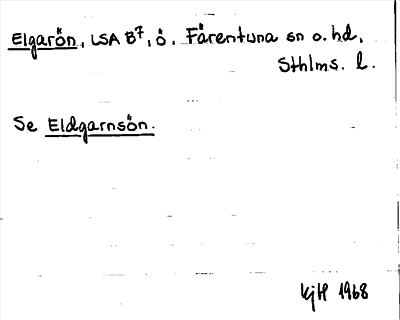 Elgarön, LSA B7, ö. Färentuna sn o. hd,
Sthlms. l.
Se Eldgarnsön.
kjH 1968